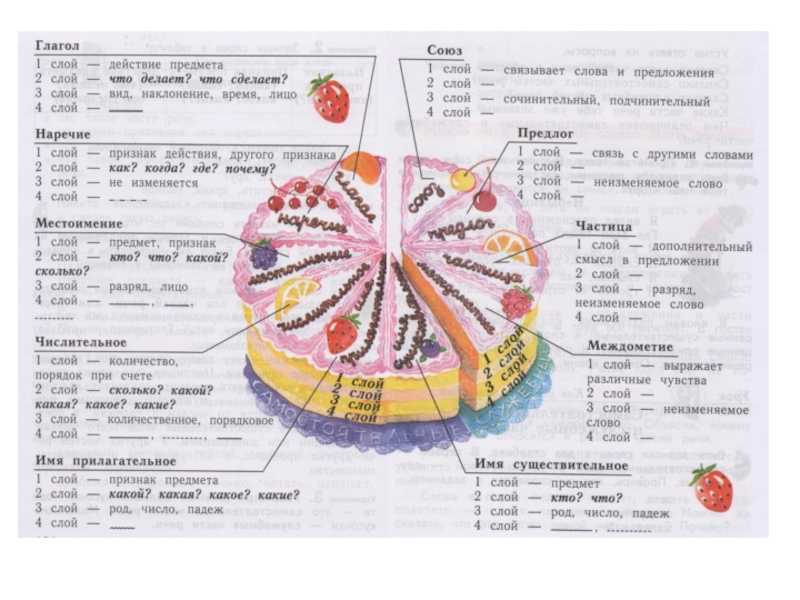 Глагол
1 слой — действие предмета
2 слой — что делает? что сделает?
3 слой — вид, наклонение, время, лицо
4 слой —
Наречие
1 слой — признак действия, другого признака
2 слой — как? когда? где? почему?
3 слой — не изменяется
4 слой —
Местоимение
1 слой — предмет, признак
2 слой — кто? что? какой?
сколько?
3 слой — разряд, лицо
4 слой — , ,
Числительное
1 слой — количество,
порядок при счете
2 слой — сколько? какой?
какая? какое? какие?
3 слой — количественное, порядковое
4 слой —
Имя прилагательное
1 слой — признак предмета
2 слой — какой? какая? какое? какие?
3 слой — род, число, падеж
4 слой —
Союз
1 слой — связывает слова и предложения
2 слой —
3 слой — сочинительный, подчинительный
4 слой —
Предлог
1 слой — связь с другими словами
2 слой —
3 слой — неизменяемое слово
4 слой —
Частица
1 слой — дополнительный
смысл в предложении
2 слой —
3 слой — разряд,
неизменяемое слово
4 слой —
Междометие
1 слой — выражает
различные чувства
2 слой —
3 слой — неизменяемое
слово
4 слой —
Имя существительное
1 слой — предмет
2 слой — кто? что?
3 слой — род, число, падеж
4 слой — ,
глагол
наречие
местоимение
числительное
союз
предлог
частица
междометие
1 слой
2 слой
3 слой
4 слой
1 слой
2 слой
3 слой
4 слой
САМОСТОЯТЕЛЬНЫЕ
СЛУЖЕБНЫЕ